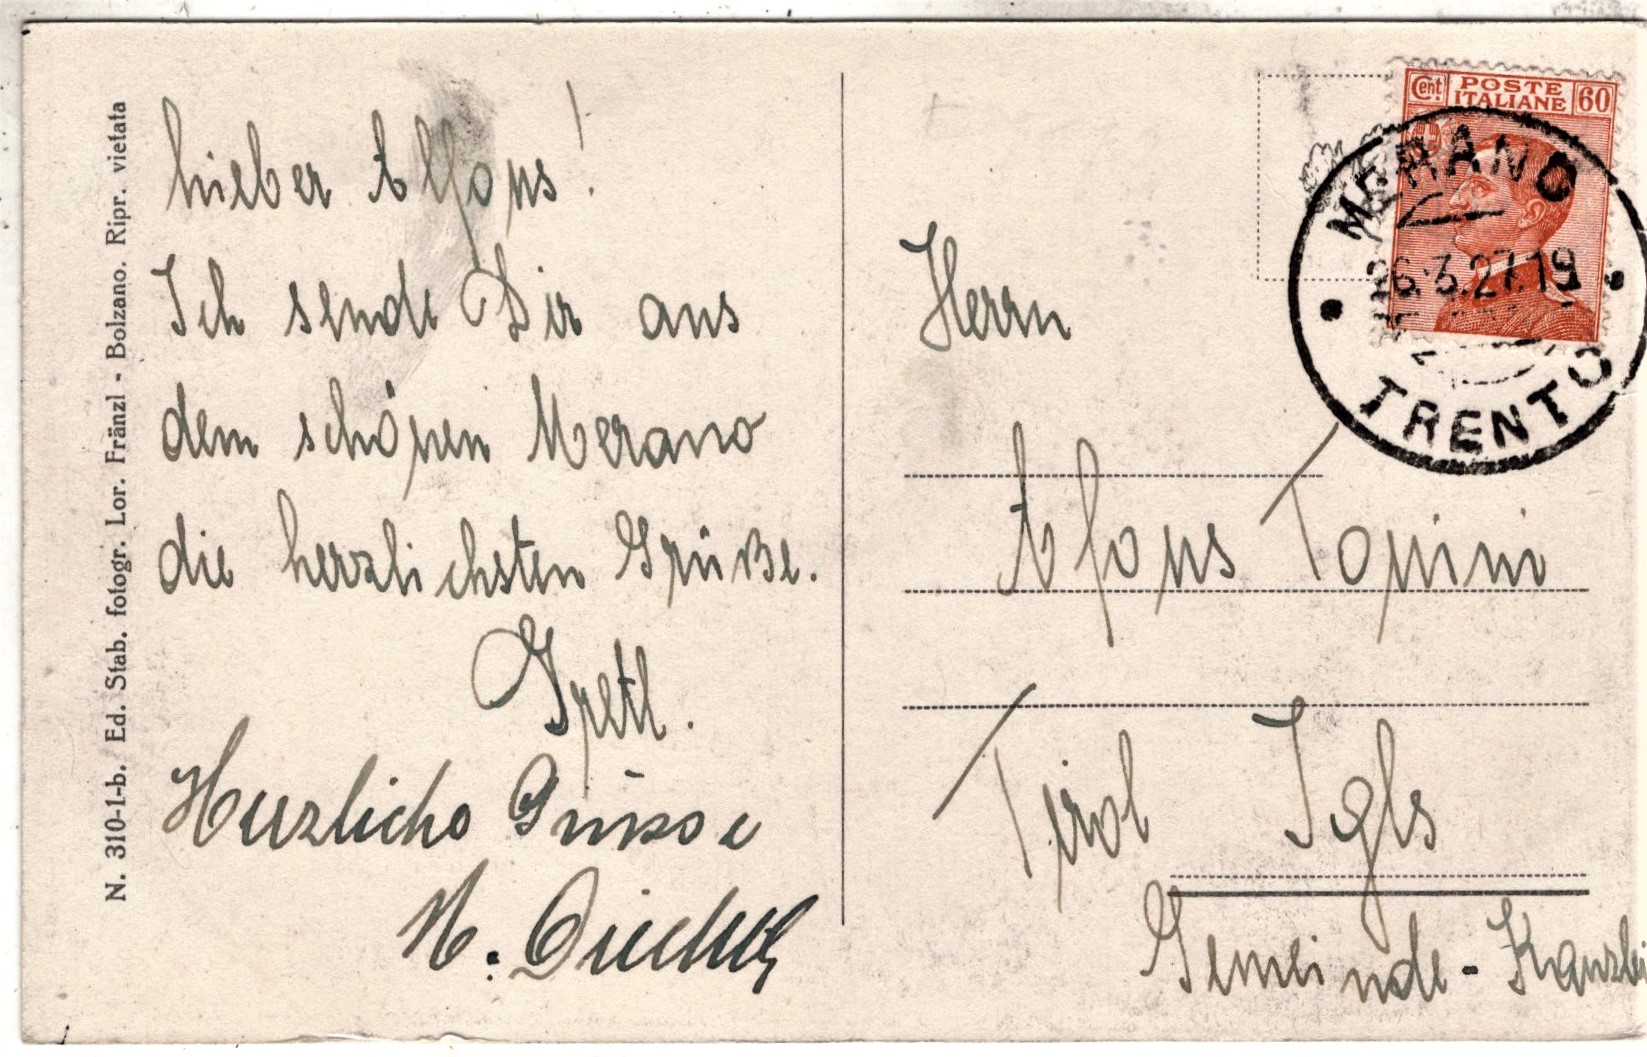 N. 310-1-b. Ed. Stab. fotogr. Lor. Fränzl - Bolzano. Ripr. vietata
Lieber Alfons!
Ich sende Dir aus
dem schönen Merano
die herzlichsten Grüße.
Gretl.
Herzliche Grüsse
M.
Cent. POSTE ITALIANE 60
MERANO
26.3.27.19
TRENTO
Herrn
Alfons Topini
Tirol Igls
Gemeinde-Kanzlei